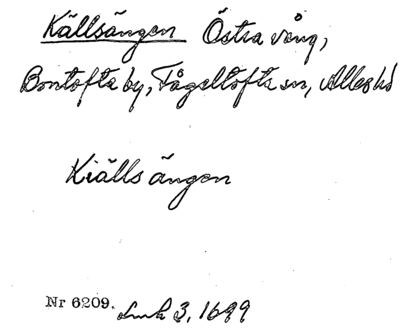 Källsängen Östra vång,
Bontofta by, Fågeltofta sn, Albo hd
Kiälls ängen
Nr 6209. Lmk 3, 1699